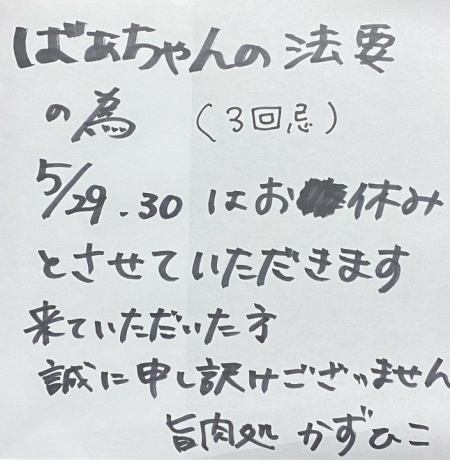 ばあちゃんの法要
の為 (3回忌)
5/29.30 はお休み
とさせていただきます
来ていただいた方
誠に申し訳けございません
旨肉処 かずひこ